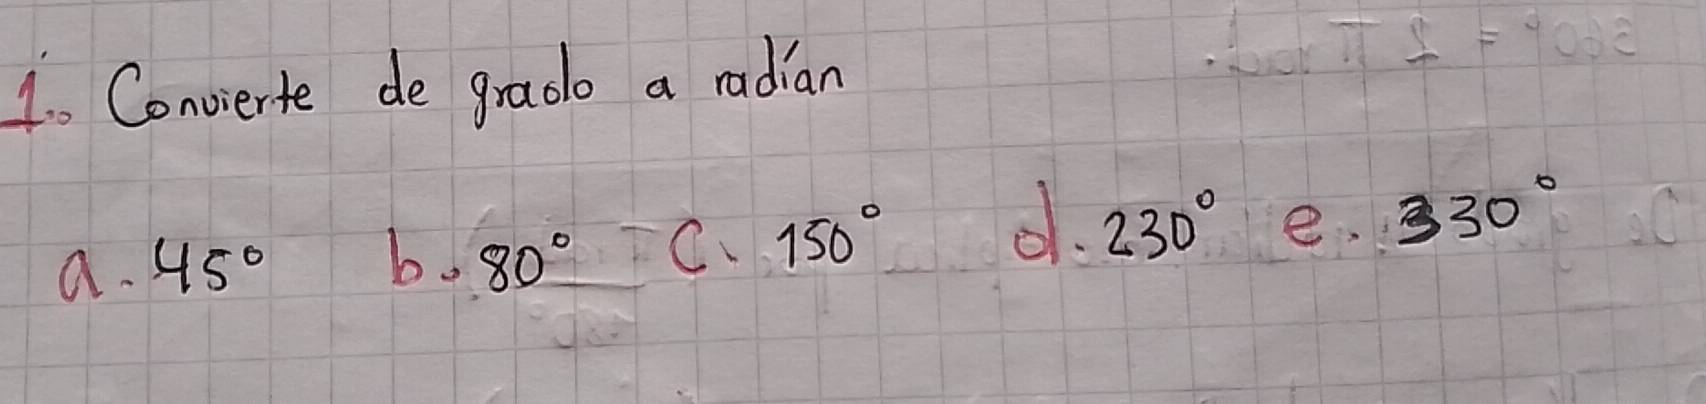 1. Convierte de grado a radían
a. 45° b. 80° c. 150° d. 230° e. 330°